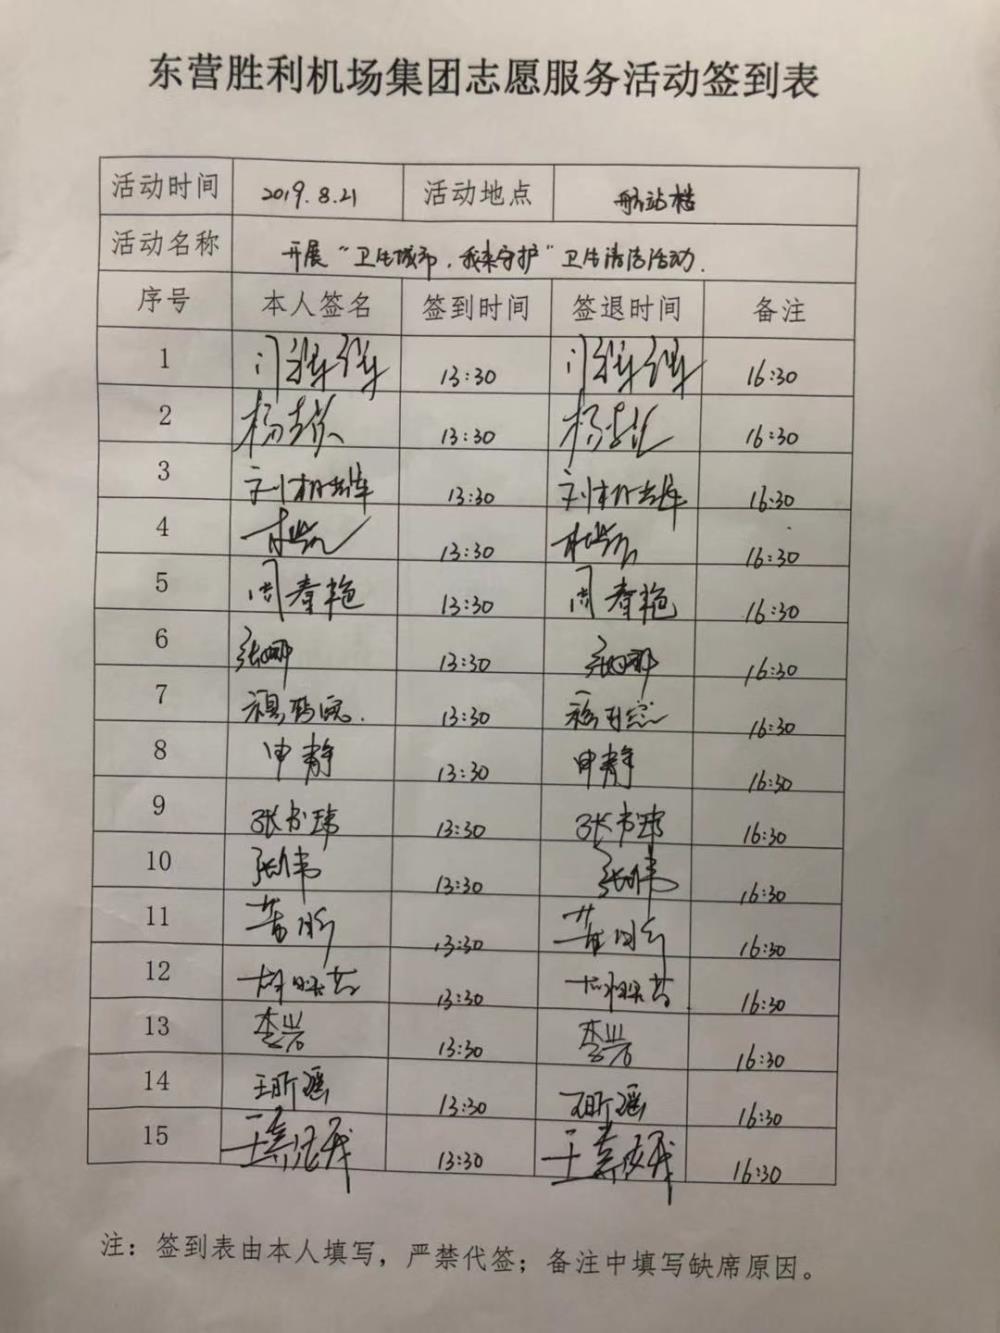 东营胜利机场集团志愿服务活动签到表
活动时间 2019.8.21 活动地点 航站楼
活动名称 开展“卫生城市，我来守护”卫生清洁活动.
序号 本人签名 签到时间 签退时间 备注
1 13:30 16:30
2 13:30 16:30
3 13:30 16:30
4 13:30 16:30
5 周春艳 13:30 周春艳 16:30
6 张娜 13:30 张娜 16:30
7 13:30 16:30
8 申静 13:30 申静 16:30
9 张书玮 13:30 张书玮 16:30
10 张伟 13:30 张伟 16:30
11 13:30 16:30
12 13:30 16:30
13 李岩 13:30 李岩 16:30
14 王昕瑶 13:30 王昕瑶 16:30
15 13:30 16:30
注：签到表由本人填写，严禁代签；备注中填写缺席原因。